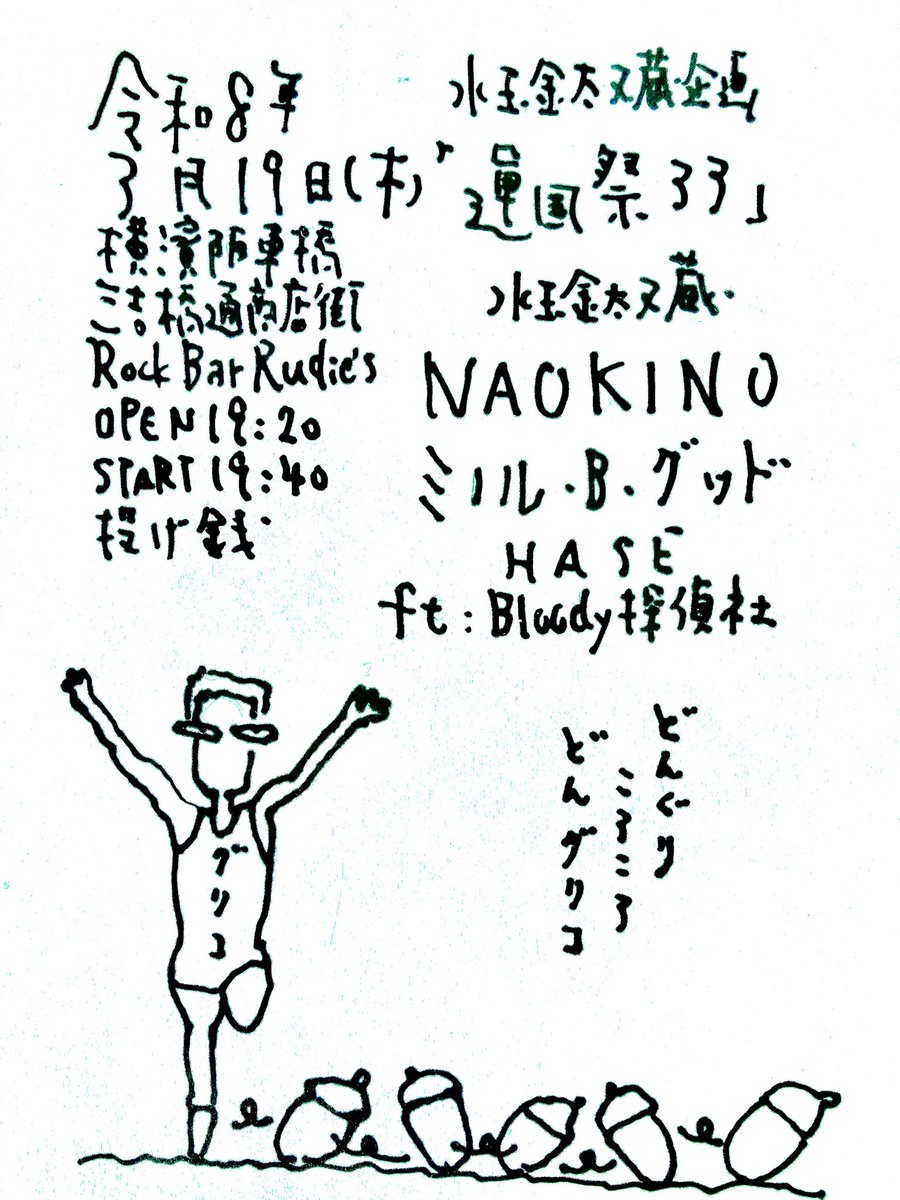 令和8年
3月19日(木)
横濱阪東橋
三吉橋通商店街
Rock Bar Rudie's
OPEN 19:20
START 19:40
投げ銭
水玉金太又蔵企画
「運国祭33」
水玉金太又蔵
NAOKINO
ミノル.B.グッド
HASE
ft:Bloody探偵社
どんぐり
ころころ
どんグリコ
グリコ